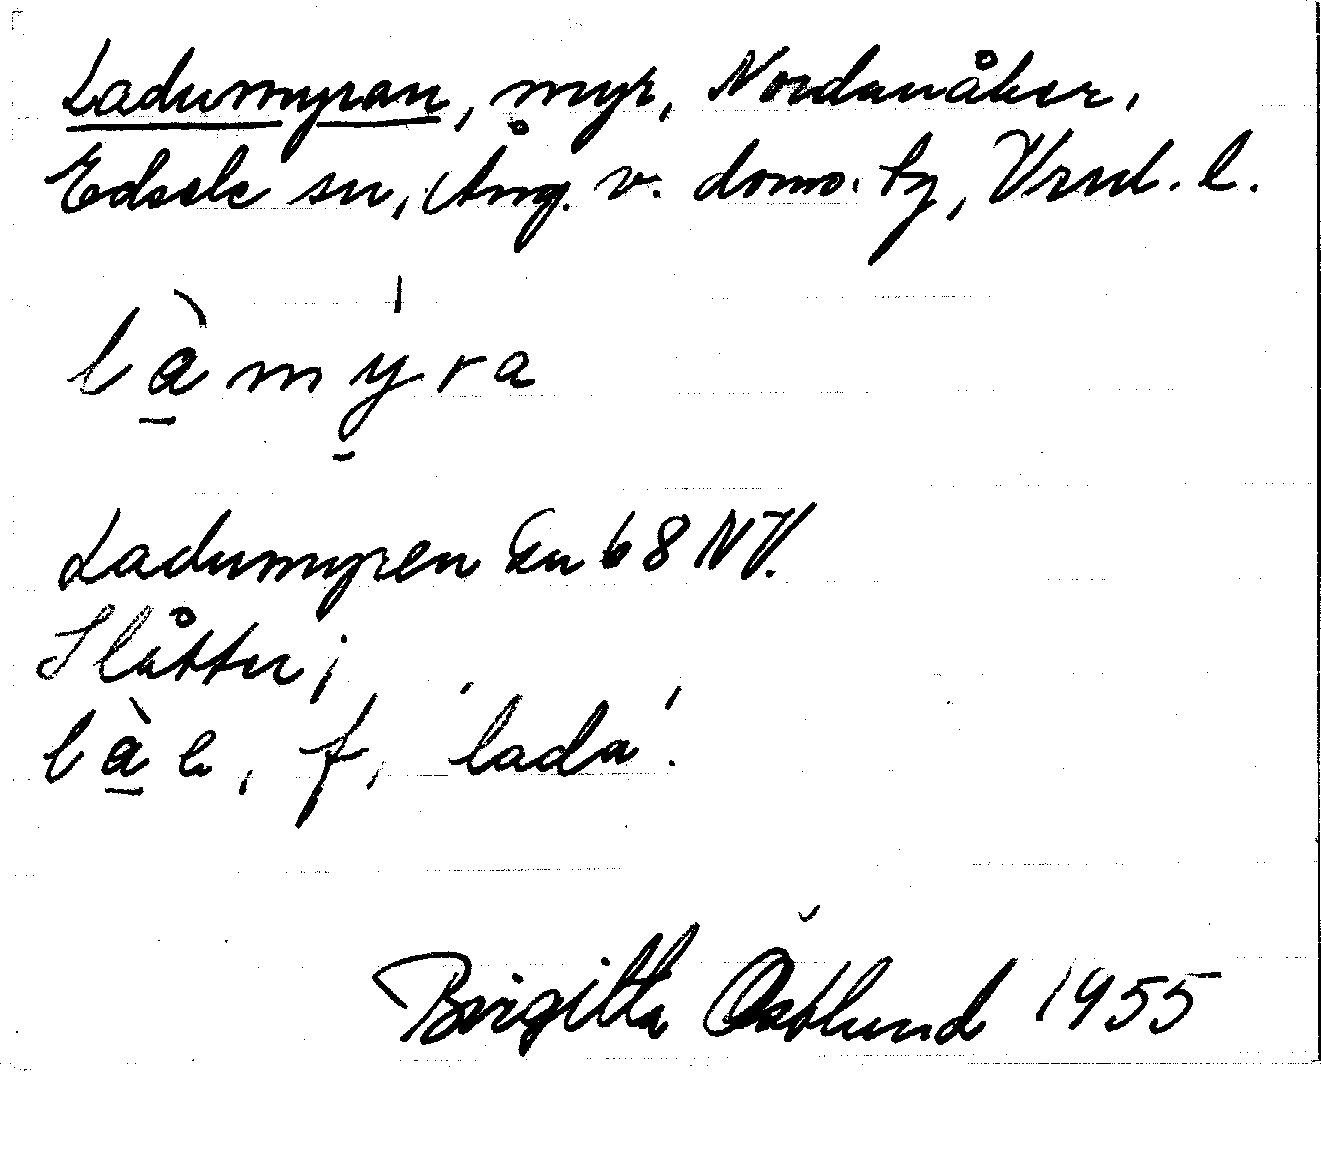 Ladumyran, myr, Nordanåker,
Edsele sn, Ång. v. doms. tg, Vrml. l.
l à m y̍ r a
Ladumyren En 68 NV.
Slåtter;
l à e, f, 'lada'.
Birgitta Östlund 1955